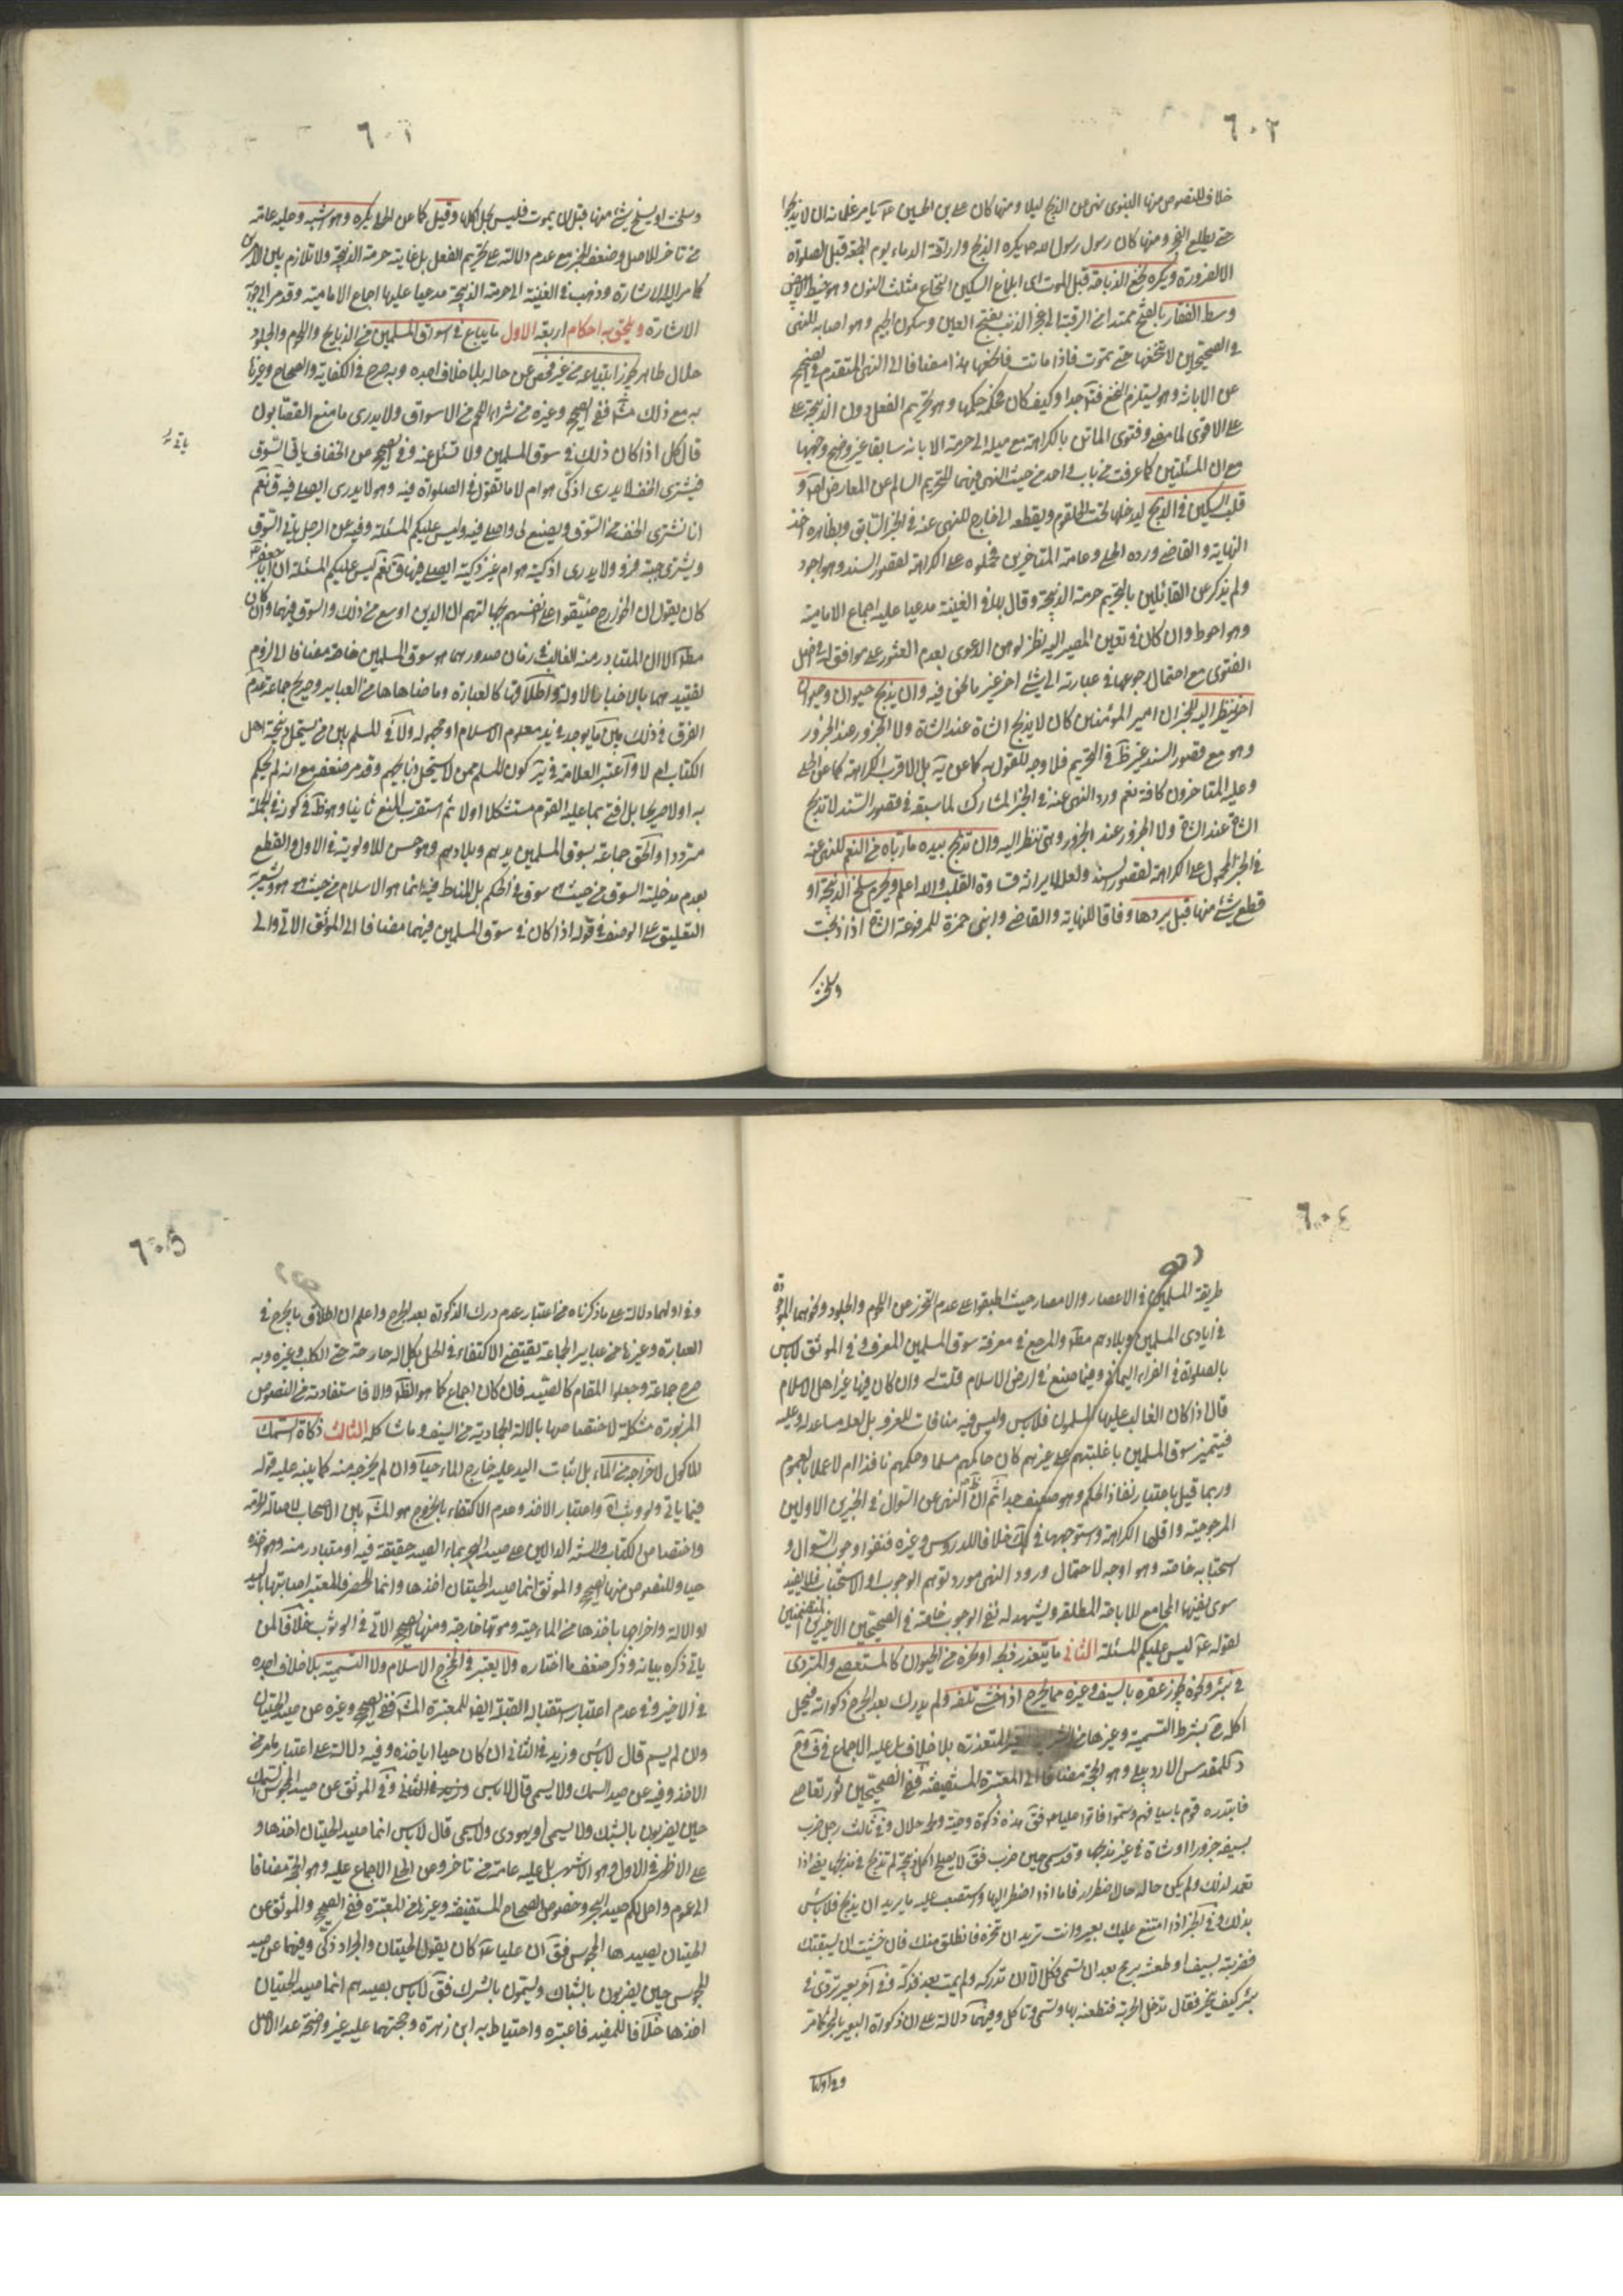 ٦٠٢
خلاف للنصوص منها النبوى نهى عن الذبح ليلا ومنها كان على بن الحسين ع يامر غلمانه ان لا يذبحوا
حتى يطلع الفجر ومنها كان رسول الله ص يكره الذبح واراقة الدماء يوم الجمعة قبل الصلوة
الا لضرورة ويكره نخع الذباحة قبل الموت اى ابلاغ السكين النخاع مثلث النون وهو الخيط الابيض
وسط الفقار بالفتح ممتدا من الرقبة الى عجز الذنب بفتح العين وسكون الجيم وهو اصابه للنهى
فى الصحيحين لا تنخعها حتى تموت فاذا ماتت فانخعها هذا مضافا الى النهى المتقدم فى الصحيح
عن الابانة وهو يستلزم النخع فتأمل جدا وكيف كان فحكمه حكمها وهو تحريم الفعل دون الذبيحة على
على الاقوى لما مضى وفتوى الماتن بالكراهة مع ميله الى حرمة الابانة سابقا غير واضح وجهها
مع ان المسئلتين كما عرفت من باب واحد من حيث النهى فيهما للتحريم السالم عن المعارض اصلا و
قلب السكين فى الذبح ليدخلها تحت الحلقوم ويقطعه الى خارج للنهى عنه فى الخبر السابق وبظاهره اخذ
النهاية والقاضى ورده الحلى وعامة المتاخرين فحملوه على الكراهة لقصور السند وهو اجود
ولم يذكر عن القائلين بالتحريم حرمة الذبيحة وقال بها فى الغنية مدعيا عليه اجماع الامامية
وهو احوط وان كان فى تعين المصير اليه نظر لوهن الدعوى بعدم العثور على موافق له فى اصل
الفتوى مع احتمال رجوعها فى عبارته الى شئ اخر غير ما نحن فيه وان يذبح حيوان وحيوان
اخر ينظر اليه للخبر ان امير المؤمنين كان لا يذبح الشاة عند الشاة ولا الجزور عند الجزور
وهو مع قصور السند غير ظ فى التحريم فلا وجه للقول به كما عن ية بل الاقرب الكراهة كما عن الحلى
وعليه المتاخرون كافة نعم ورد النهى عنه فى الخبر المشارك لما سبقه فى قصور السند لا تذبح
الشاة عند الشاة ولا الجزور عند الجزور وهى تنظر اليه وان تذبح بيده ما رباه من النعم للنهى عنه
فى الخبر المحمول على الكراهة لقصور السند ولعله لايراثه قساوة القلب والله اعلم ويحرم سلخ الذبيحة او
قطع شئ منها قبل بردها وفاقا للنهاية والقاضى وابنى حمزة للمرفوعة الشاة اذا ذبحت
وسلخت
٦٠١
وسلخت او يسلخ شئ منها قبل ان يموت فليس يحل اكلها وقيل كما عن الحلى يكره وهو اشبه وعليه عامة
من تاخر للاصل وضعف الخبر مع عدم دلالته على تحريم الفعل بل غايته حرمة الذبيحة ولا تلازم بين الامرين
كما مر اليه الاشارة وذهب فى الغنية الى حرمة الذبيحة مدعيا عليها اجماع الامامية وقد مر الى جوابه
الاشارة ويلحق به احكام اربعة الاول ما يباع فى اسواق المسلمين من الذبايح واللحوم والجلود
حلال طاهر يجوز ابتياعه من غير فحص عن حاله بلا خلاف اجده وبه صرح فى الكفاية والصحاح وغيرها
به مع ذلك ففى الصحيح وغيره من شراء اللحم من الاسواق ولا يدرى ما صنع القصابون
قال كل اذا كان ذلك فى سوق المسلمين ولا تسئل عنه وفى الصحيح عن الخفاف ياتى السوق
فيشترى الخف لا يدرى اذكى هو ام لا ما تقول فى الصلوة فيه وهو لا يدرى ايصلى فيه ق نعم
انا نشترى الخف من السوق ويصنع لى واصلى فيه وليس عليكم المسئلة وفيه عن الرجل ياتى السوق
ويشترى جبة فرو ولا يدرى اذكية هو ام غير ذكية ايصلى فيها ق نعم ليس عليكم المسئلة ان ابا جعفر ع
كان يقول ان الخوارج ضيقوا على انفسهم بجهالتهم ان الدين اوسع من ذلك والسوق فيهما وان كان
مطلقا الا ان المتبادر منه الغالب فى زمان صدورهما هو سوق المسلمين خاصة مضافا الى لزوم
تقييدهما بالاخبار الاولة واطلاقها كالعبارة وما ضاهاها من العباير وصريح جماعة عدم
الفرق فى ذلك بين ما يوجد فى يد معلوم الاسلام او مجهوله ولا فى المسلم بين من يستحل ذبيحة اهل
الكتاب ام لا واعتبر العلامة فى ير كون المسلم ممن لا يستحل ذبايحهم وقد مر ضعفه مع انه لم يحكم
به اولا صريحا بل افتى بما عليه القوم مستشكلا اولا ثم استقرب المنع ثانيا وهو ظ فى كونه فى الجملة
مترددا والحق جماعة بسوق المسلمين يدهم وبلادهم وهو حسن للاولوية فى الاول والقطع
بعدم مدخلية السوق من حيث هو سوق فى الحكم بل المناط فيه انما هو الاسلام من حيث هو هو ويشعر به
التعليق على الوصف فى قوله اذا كان فى سوق المسلمين فيهما مضافا الى الموثق الاتى والى
٦٠٤
طريقة المسلمين فى الاعصار والامصار حيث اطبقوا على عدم التحرز عن اللحوم والجلود ونحوهما الموجودة
فى ايادى المسلمين وبلادهم مطلقا والمرجع فى معرفة سوق المسلمين المعرف وفى الموثق لا باس
بالصلوة فى الفراء اليمانى وفيما صنع فى ارض الاسلام قلت له وان كان فيها غير اهل الاسلام
قال اذا كان الغالب عليها المسلمون فلا باس وليس فيه منافات للعرف بل لعله مساعد له وعليه
فيتميز سوق المسلمين باغلبيتهم على غيرهم كان حاكمهم مسلما وحكمهم نافذا ام لا عملا بالعموم
وربما قيل باعتبار نفاذ الحكم وهو ضعيف جدا ثم ان ظ النهى عن السوال فى الخبرين الاولين
المرجوحية واقلها الكراهة واستوجهها فى لك خلافا للدروس وغيره فنفوا وجوب السوال و
استحبابه خاصة وهو اوجه لاحتمال ورود النهى مورد توهم الوجوب او الاستحباب فلا يفيد
سوى نفيها الجامع للاباحة المطلقة ويشهد له نفى الوجوب خاصة فى الصحيحين الاخيرين المتضمنين
لقوله ع ليس عليكم المسئلة الثانى ما يتعذر ذبحه او نحره من الحيوان كالمستعصى والمتردى
فى بئر ونحوه يجوز عقره بالسيف وغيره مما يجرح اذا خشى تلفه ولم يدرك بعد الجرح ذكوته فيحل
اكله ح بشرط التسمية وغيرها من الشرايط الغير المتعذرة بلا خلاف بل عليه الاجماع فى
كالمقدس الاردبيلى وهو الحجة مضافا الى المعتبرة المستفيضة ففى الصحيحين ثور تعاصى
فابتدره قوم باسيافهم وسموا فاتوا عليا ع فق هذه ذكوة وحية ولحمه حلال وفى ثالث رجل ضرب
بسيفه جزورا او شاة فى غير مذبحها وقد سمى حين ضرب فق لا يصلح اكل ذبيحة لم تذبح فى مذبحها يعنى اذا
تعمد لذلك ولم يكن حاله حال اضطرار فاما اذا اضطر اليها واستصعب عليه ما يريد ان يذبح فلا باس
بذلك وفى الخبر اذا امتنع عليك بعير وانت تريد ان تنحره فانطلق منك فان خشيت ان يسبقك
فضربته بسيف او طعنته برمح بعد ان تسمى فكل الا ان تدركه ولم يمت بعد فذكه وفى آخر بعير تردى فى
بئر كيف ينحر فقال تدخل الحربة فتطعنه بها وتسمى وتاكل وفيهما دلالة على ان ذكوة البعير بالنحر كما مر
وفى اولهما
٦٠٥
وفى اولهما دلالة على ما ذكرناه من اعتبار عدم درك الذكوة بعد الجرح واعلم ان اطلاق ما يجرح فى
العبارة وغيرها من عباير الجماعة يقتضى الاكتفاء فى الحل بكل آلة جارحة حتى الكلب وغيره وبه
صرح جماعة وجعلوا المقام كالصيد فان كان اجماع كما هو الظ والا فاستفادته من النصوص
المزبورة مشكلة لاختصاصها بالالة الجمادية من السيف وما شاكله الثالث ذكاة السمك
الماكول لاخراجه من الماء بل اثبات اليد عليه خارج الماء حيا وان لم يخرجه منه كما ينبه عليه قوله
فيما ياتى ولو وثب اه واعتبار الاخذ وعدم الاكتفاء بالخروج هو المش بين الاصحاب لاصالة الحرمة
واختصاص الكتاب والسنة الدالين على صيد البحر بماء الصيد حقيقة فيه او متبادر منه وهو اخذه
حيا وللنصوص منها الصحيح والموثق انما صيد الحيتان اخذها وانما للحصر فالمعتبر اصابتها باليد
او الالة واخراجها باخذها من الماء حية وموتها خارجه ومنها الصحيح الاتى فى الوثوب خلافا لمن
ياتى ذكره بيانه وذكر ضعف ما اختاره ولا يعتبر فى المخرج الاسلام ولا التسمية بلا خلاف اجده
فى الاخير وفى عدم اعتبار استقبال القبلة ايضا للمعتبرة ففى الصحيح وغيره عن صيد الحيتان
وان لم يسم قال لا باس وزيد فى الثانى ان كان حيا ان ياخذه وفيه دلالة على اعتبار ما مر من
الاخذ وفيه عن صيد السمك ولا يسمى قال لا باس وفى الموثق عن صيد المجوس السمك
حين يضربون بالشبك ولا يسمى او يهودى ولا يسمى قال لا باس انما صيد الحيتان اخذها و
على الاظهر فى الاول وهو الاشهر بل عليه عامة من تاخر وعن الحلى الاجماع عليه وهو الحجة مضافا
الى عموم واحل لكم صيد البحر وخصوص الصحاح المستفيضة وغيرها من المعتبرة ففى الصحيح والموثق عن
الحيتان يصيدها المجوس فق ان عليا ع كان يقول الحيتان والجراد ذكى وفيهما عن صيد
المجوس حين يضربون بالشباك ويسمون بالشرك فق لا باس بصيدهم انما صيد الحيتان
اخذها خلافا للمفيد فاعتبره واحتاط به ابن زهرة وحجتهما عليه غير واضحة عدا الاصل